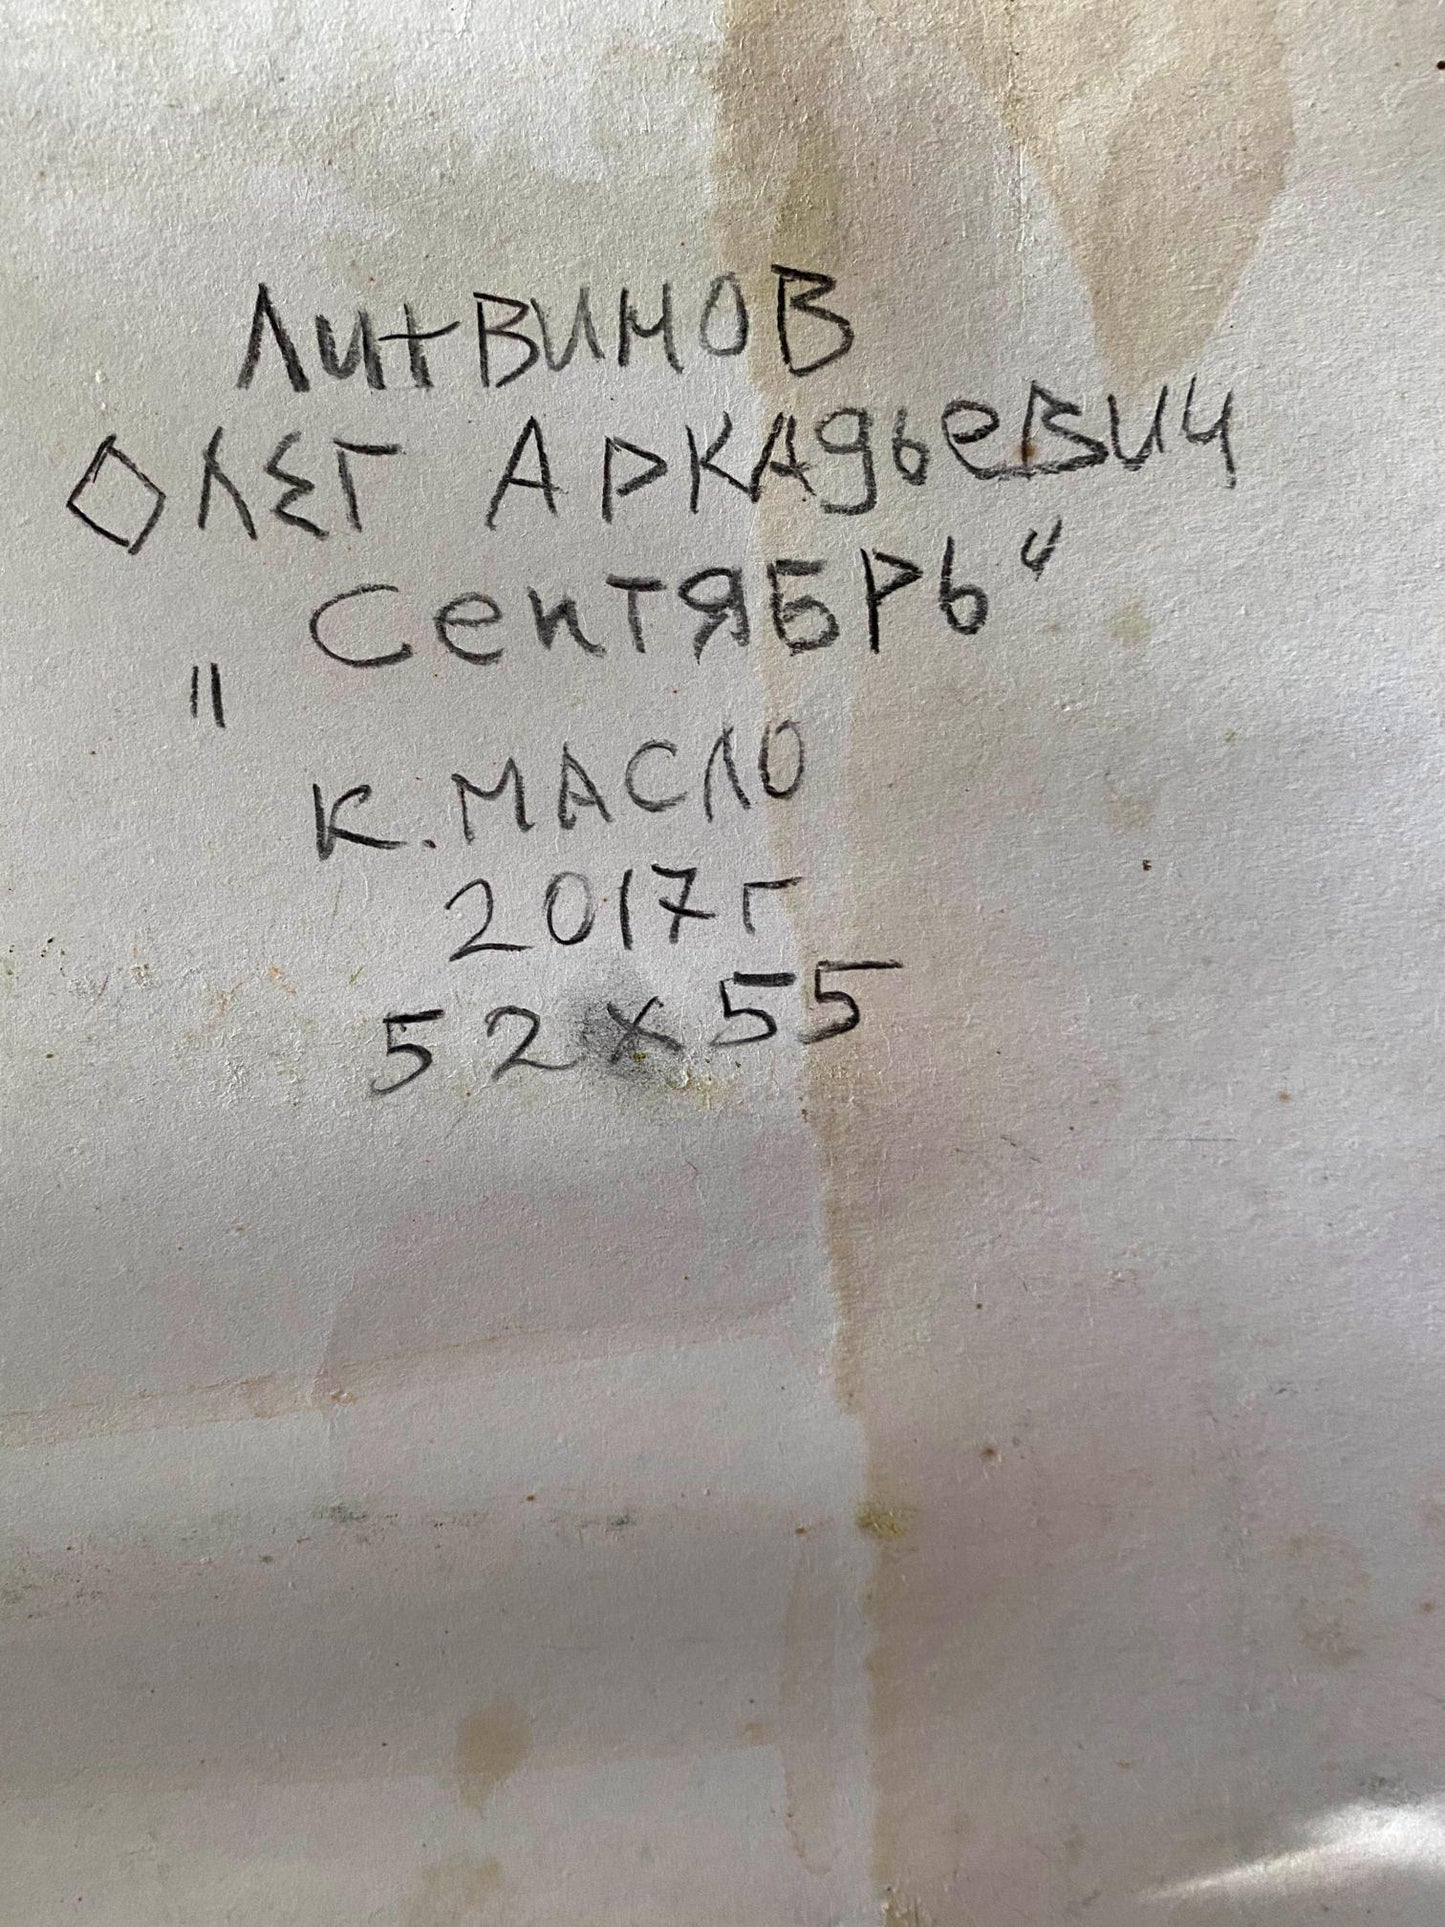 Литвинов
Олег Аркадьевич
„Сентябрь“
к. масло
2017г
52х55